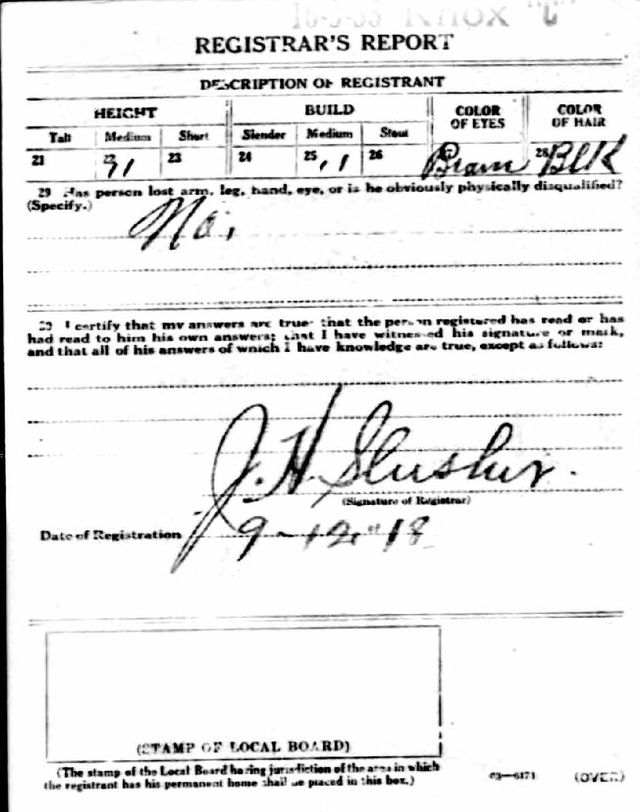 Knox "C"
REGISTRAR'S REPORT
DESCRIPTION OF REGISTRANT
HEIGHT BUILD COLOR OF EYES COLOR OF HAIR
Tall Medium Short Slender Medium Stout
21 22 1 23 24 25 1 26 Brown 28 Blk
29 Has person lost arm, leg, hand, eye, or is he obviously physically disqualified?
(Specify.)
No.
30 I certify that my answers are true; that the person registered has read or has
had read to him his own answers; that I have witnessed his signature or mark,
and that all of his answers of which I have knowledge are true, except as follows:
J. H. Slusher.
(Signature of Registrar)
Date of Registration 9-12-18
(STAMP OF LOCAL BOARD)
(The stamp of the Local Board having jurisdiction of the area in which
the registrant has his permanent home shall be placed in this box.)
03-6171 (OVER)